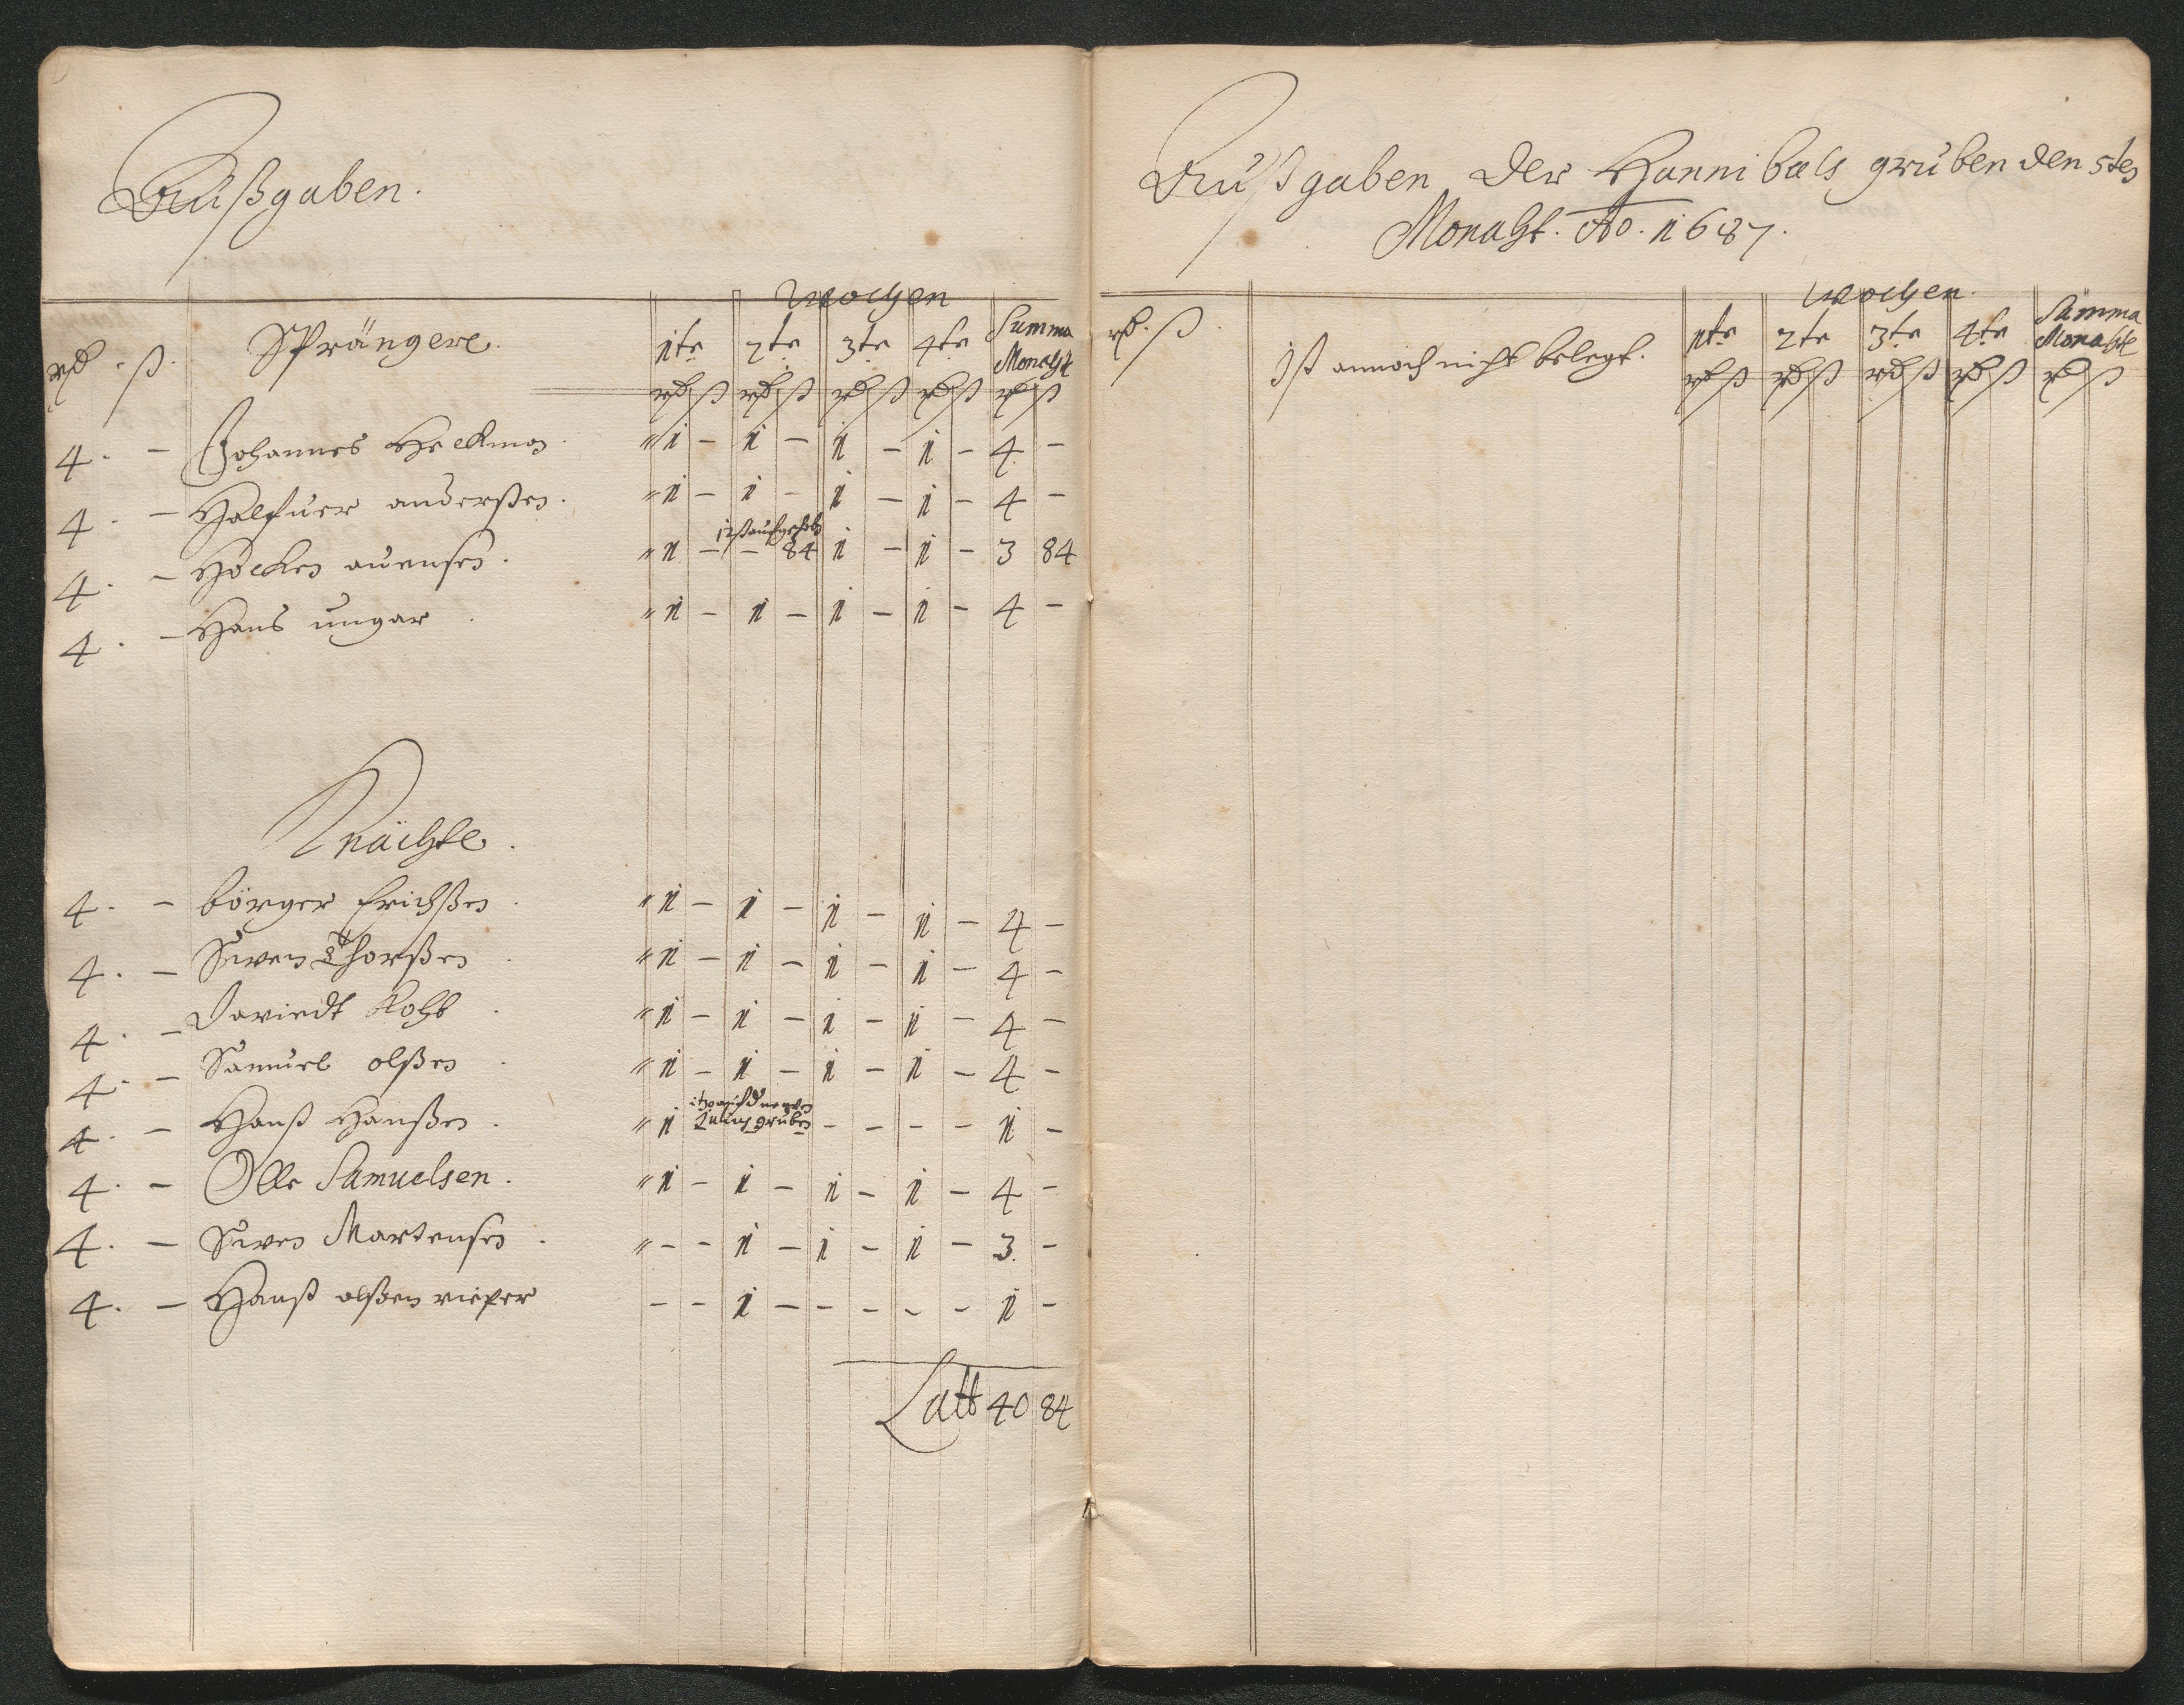 Außgaben.
Wochen
rd. ß. Sprängere. 1te 2te 3te 4te Summa Monaht
rd ß rd ß rd ß rd ß rd ß
4. — Johannes Heckman. " 1 — 1 — 1 — 1 — 4. —
4. — Halfuer anderßen. " 1 — 1 — 1 — 1 — 4 —
12 ß aufgehob
4. — Hocken auensen. " 1 — — 84 1 — 1 — 3 84
4. — Hans ungar. " 1 — 1 — 1 — 1 — 4 —
Knächte.
4. — börger Erichßen. " 1 — 1 — 1 — 1 — 4 —
4. — Swen Thorßen. " 1 — 1 — 1 — 1 — 4 —
4. — Daviedt Kohl. " 1 — 1 — 1 — 1 — 4 —
4. — Samuel olßen. " 1 — 1 — 1 — 1 — 4 —
4. — Hanß Hanßen. " 1 gruben — — — — 1 —
4. — Olle Samuelsen. " 1 — 1 — 1 — 1 — 4 —
4. — Swen Martensen. " — — 1 — 1 — 1 — 3. —
4. — Hanß olßen — — 1 — — — — — 1 —
Latt 40 84
Außgaben Der Hannibals gruben den 5ten
Monaht. Ao. 1687.
Wochen.
rd. ß. Ist annoch nicht belegt. 1te 2te 3te 4te Summa Monaht
rd ß rd ß rd ß rd ß rd ß